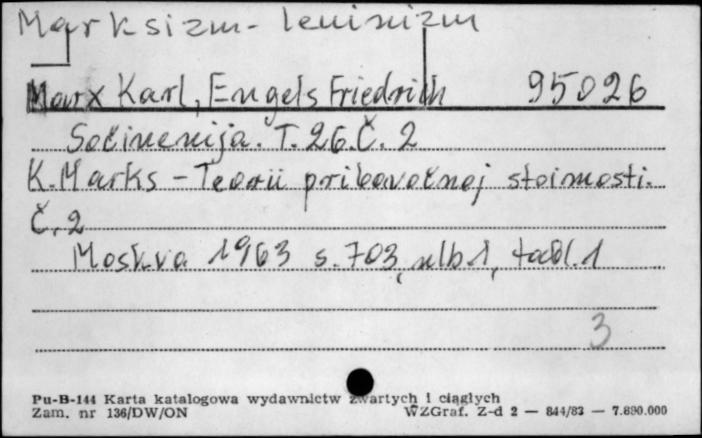 Marksizm-leninizm
Marx Karl, Engels Friedrich 95026
Sočinenija. T. 26. Č. 2
K. Marks - Teorii pribavočnoj stoimosti.
Č. 2
Moskva 1963 s. 703, nlb 1, tabl. 1
3
Pu-B-144 Karta katalogowa wydawnictw zwartych i ciągłych
Zam. nr 136/DW/ON WZGraf. Z-d 2 — 844/83 — 7.890.000